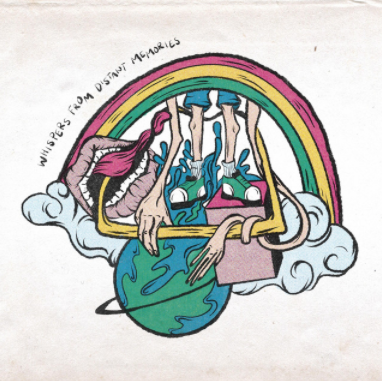 WHISPERS FROM DISTANT MEMORIES